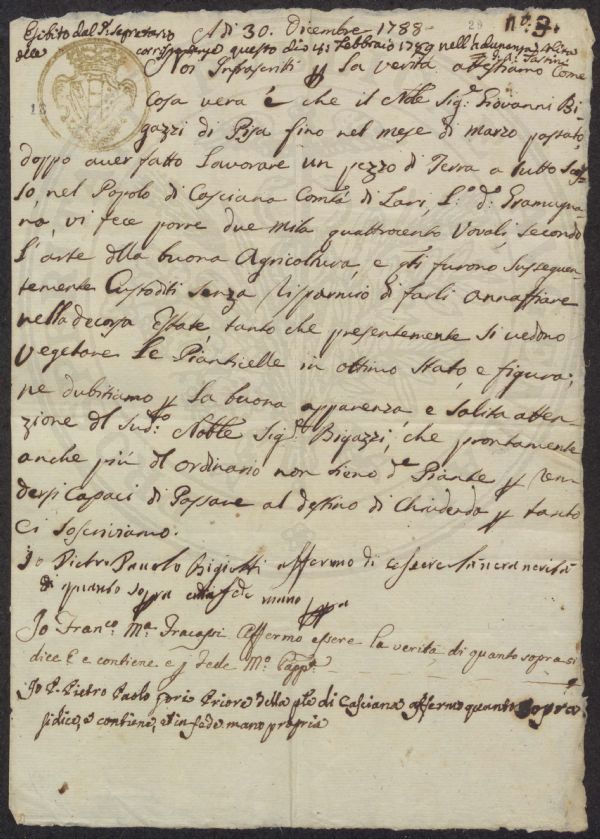 Esibito dal Sig. Segretario
Adì 30. Dicembre 1788.
20
n.° 3.
delle corrispondenze questo dì 4: Febbraio 1789 nell'adunanza
Noi Infrascritti p la verità attestiamo Come
18
Cosa vera è che il Noble Sig.e Giovanni Bi-
gazzi di Pisa fino nel mese di Marzo passato,
doppo aver fatto Lavorare un pezzo di Terra a tutto Scas-
so, nel Popolo di Casciana Com.tà di Lari, L.o d.o Gramugna-
na, vi fece porre due Mila quattrocento Vovoli, secondo
l'arte della buona Agricoltura, e gli furono Susseguen-
temente Custoditi senza Risparmio di farli annaffiare
nella decorsa Estate, tanto che presentemente si vedono
Vegetare le Pianticelle in ottimo Stato, e figura;
ne dubitiamo p la buona apparenza, e Solita atten-
zione del Sud.o Noble Sig.e Bigazzi, che prontamente
anche più del ordinario non sieno d.e Piante p ren-
dersi Capaci di Passare al destino di Chiudenda p tanto
Ci soscriviamo.
Io Pietro Pavolo affermo di essere la vera verità
di quanto sopra mano ppa
Io Franc.o M.a Fracassi Affermo essere la verità di quanto sopra si
dice e contiene e in fede M.o Propp.a
Io P. Pietro Paolo Priore della di Casciana affermo quanto Sopra
si dice, e contiene, e in fede mano propria